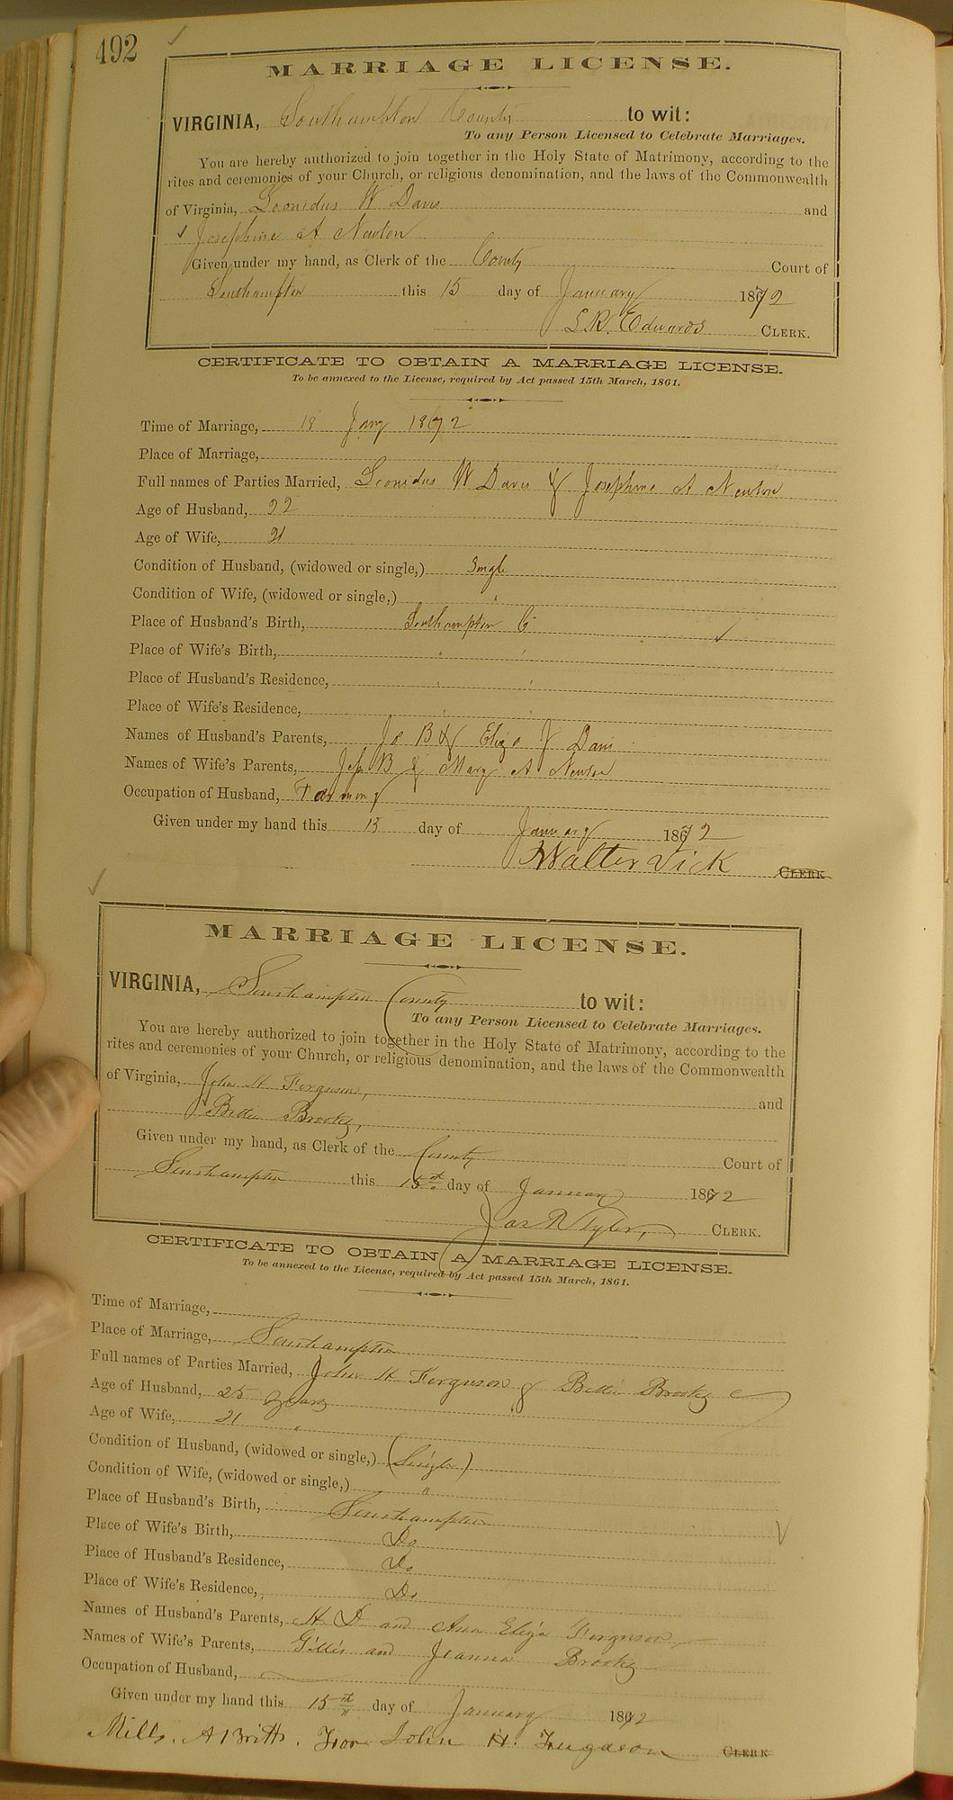 492
MARRIAGE LICENSE.
VIRGINIA, Southampton County to wit:
To any Person Licensed to Celebrate Marriages.
You are hereby authorized to join together in the Holy State of Matrimony, according to the
rites and ceremonies of your Church, or religious denomination, and the laws of the Commonwealth
of Virginia, Leonidus W Davis and
Josephine A Newton
Given under my hand, as Clerk of the County Court of
Southampton this 15 day of January 1872
L.R. Edwards CLERK.
CERTIFICATE TO OBTAIN A MARRIAGE LICENSE.
To be annexed to the License, required by Act passed 15th March, 1861.
Time of Marriage, 18 Jany 1872
Place of Marriage,
Full names of Parties Married, Leonidus W Davis & Josephine A Newton
Age of Husband, 22
Age of Wife, 21
Condition of Husband, (widowed or single,) Single
Condition of Wife, (widowed or single,) "
Place of Husband's Birth, Southampton Co
Place of Wife's Birth, " "
Place of Husband's Residence, " "
Place of Wife's Residence, " "
Names of Husband's Parents, Jo B & Eliza J Davis
Names of Wife's Parents, B & Mary A Newton
Occupation of Husband, Farming
Given under my hand this 15 day of January 1872
Walter Vick CLERK
MARRIAGE LICENSE.
VIRGINIA, Southampton County to wit:
To any Person Licensed to Celebrate Marriages.
You are hereby authorized to join together in the Holy State of Matrimony, according to the
rites and ceremonies of your Church, or religious denomination, and the laws of the Commonwealth
of Virginia, John H Ferguson, and
Bettie Brooks,
Given under my hand, as Clerk of the County Court of
Southampton this 15th day of January 1872
Jas R Tyler, CLERK.
CERTIFICATE TO OBTAIN A MARRIAGE LICENSE.
To be annexed to the License, required by Act passed 15th March, 1861.
Time of Marriage,
Place of Marriage, Southampton
Full names of Parties Married, John H Ferguson & Bettie Brooks
Age of Husband, 25 years
Age of Wife, 21 "
Condition of Husband, (widowed or single,) (Single)
Condition of Wife, (widowed or single,) "
Place of Husband's Birth, Southampton
Place of Wife's Birth, Do
Place of Husband's Residence, Do
Place of Wife's Residence, Do
Names of Husband's Parents, H. D and Ann Eliza Ferguson
Names of Wife's Parents, and Joanna Brooks
Occupation of Husband,
Given under my hand this 15th day of January 1872
Mills. A Britt. For John H. Fergason CLERK